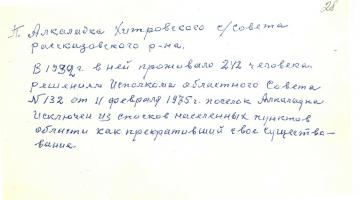 28
п. Алкаладка Хитровского с/совета
рассказовского р-на.
В 1932 г в ней проживало 212 человека.
решением Исполкома областного Совета
№ 132 от 11 февраля 1975г. поселок Алкаладка
исключен из списков населенных пунктов
области как прекративший свое существо-
вание.